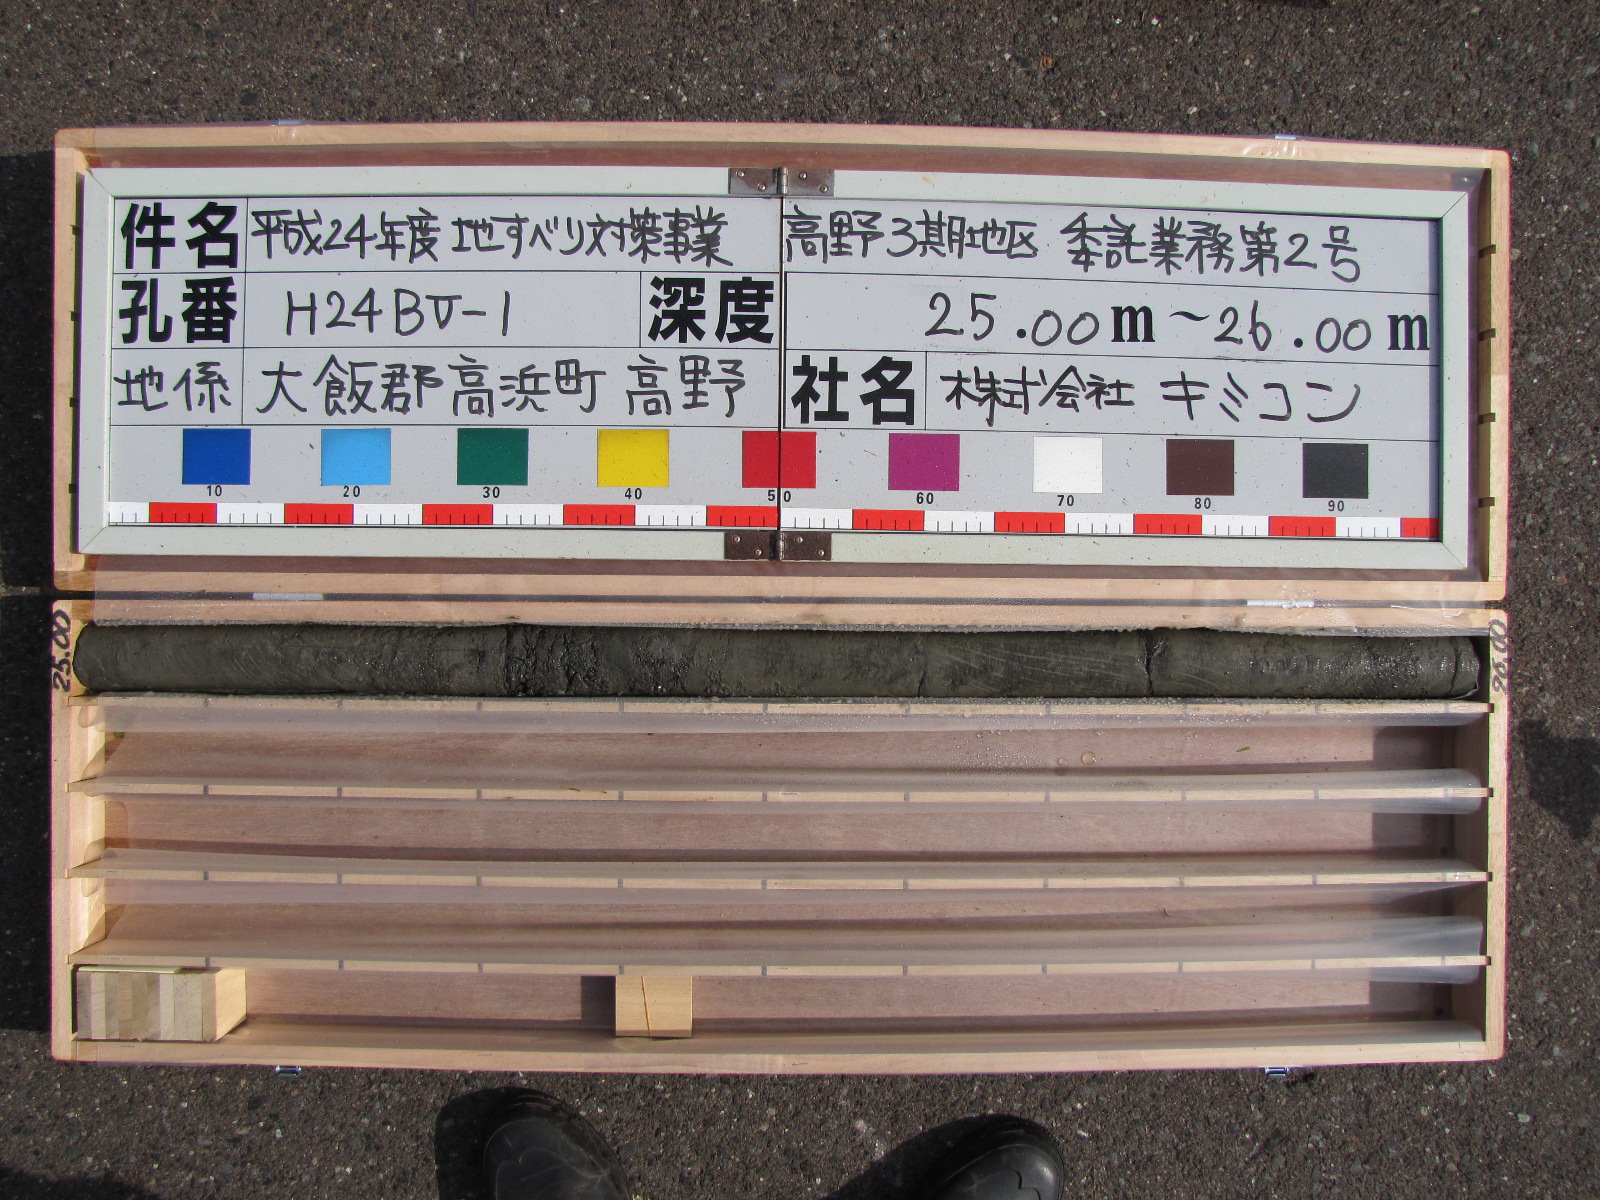 件名 平成24年度 地すべり対策事業 高野3期地区 委託業務第2号
孔番 H24BV-1 深度 25.00m~26.00m
地係 大飯郡高浜町 高野 社名 株式会社 キミコン
10 20 30 40 50 60 70 80 90
25.00 26.00